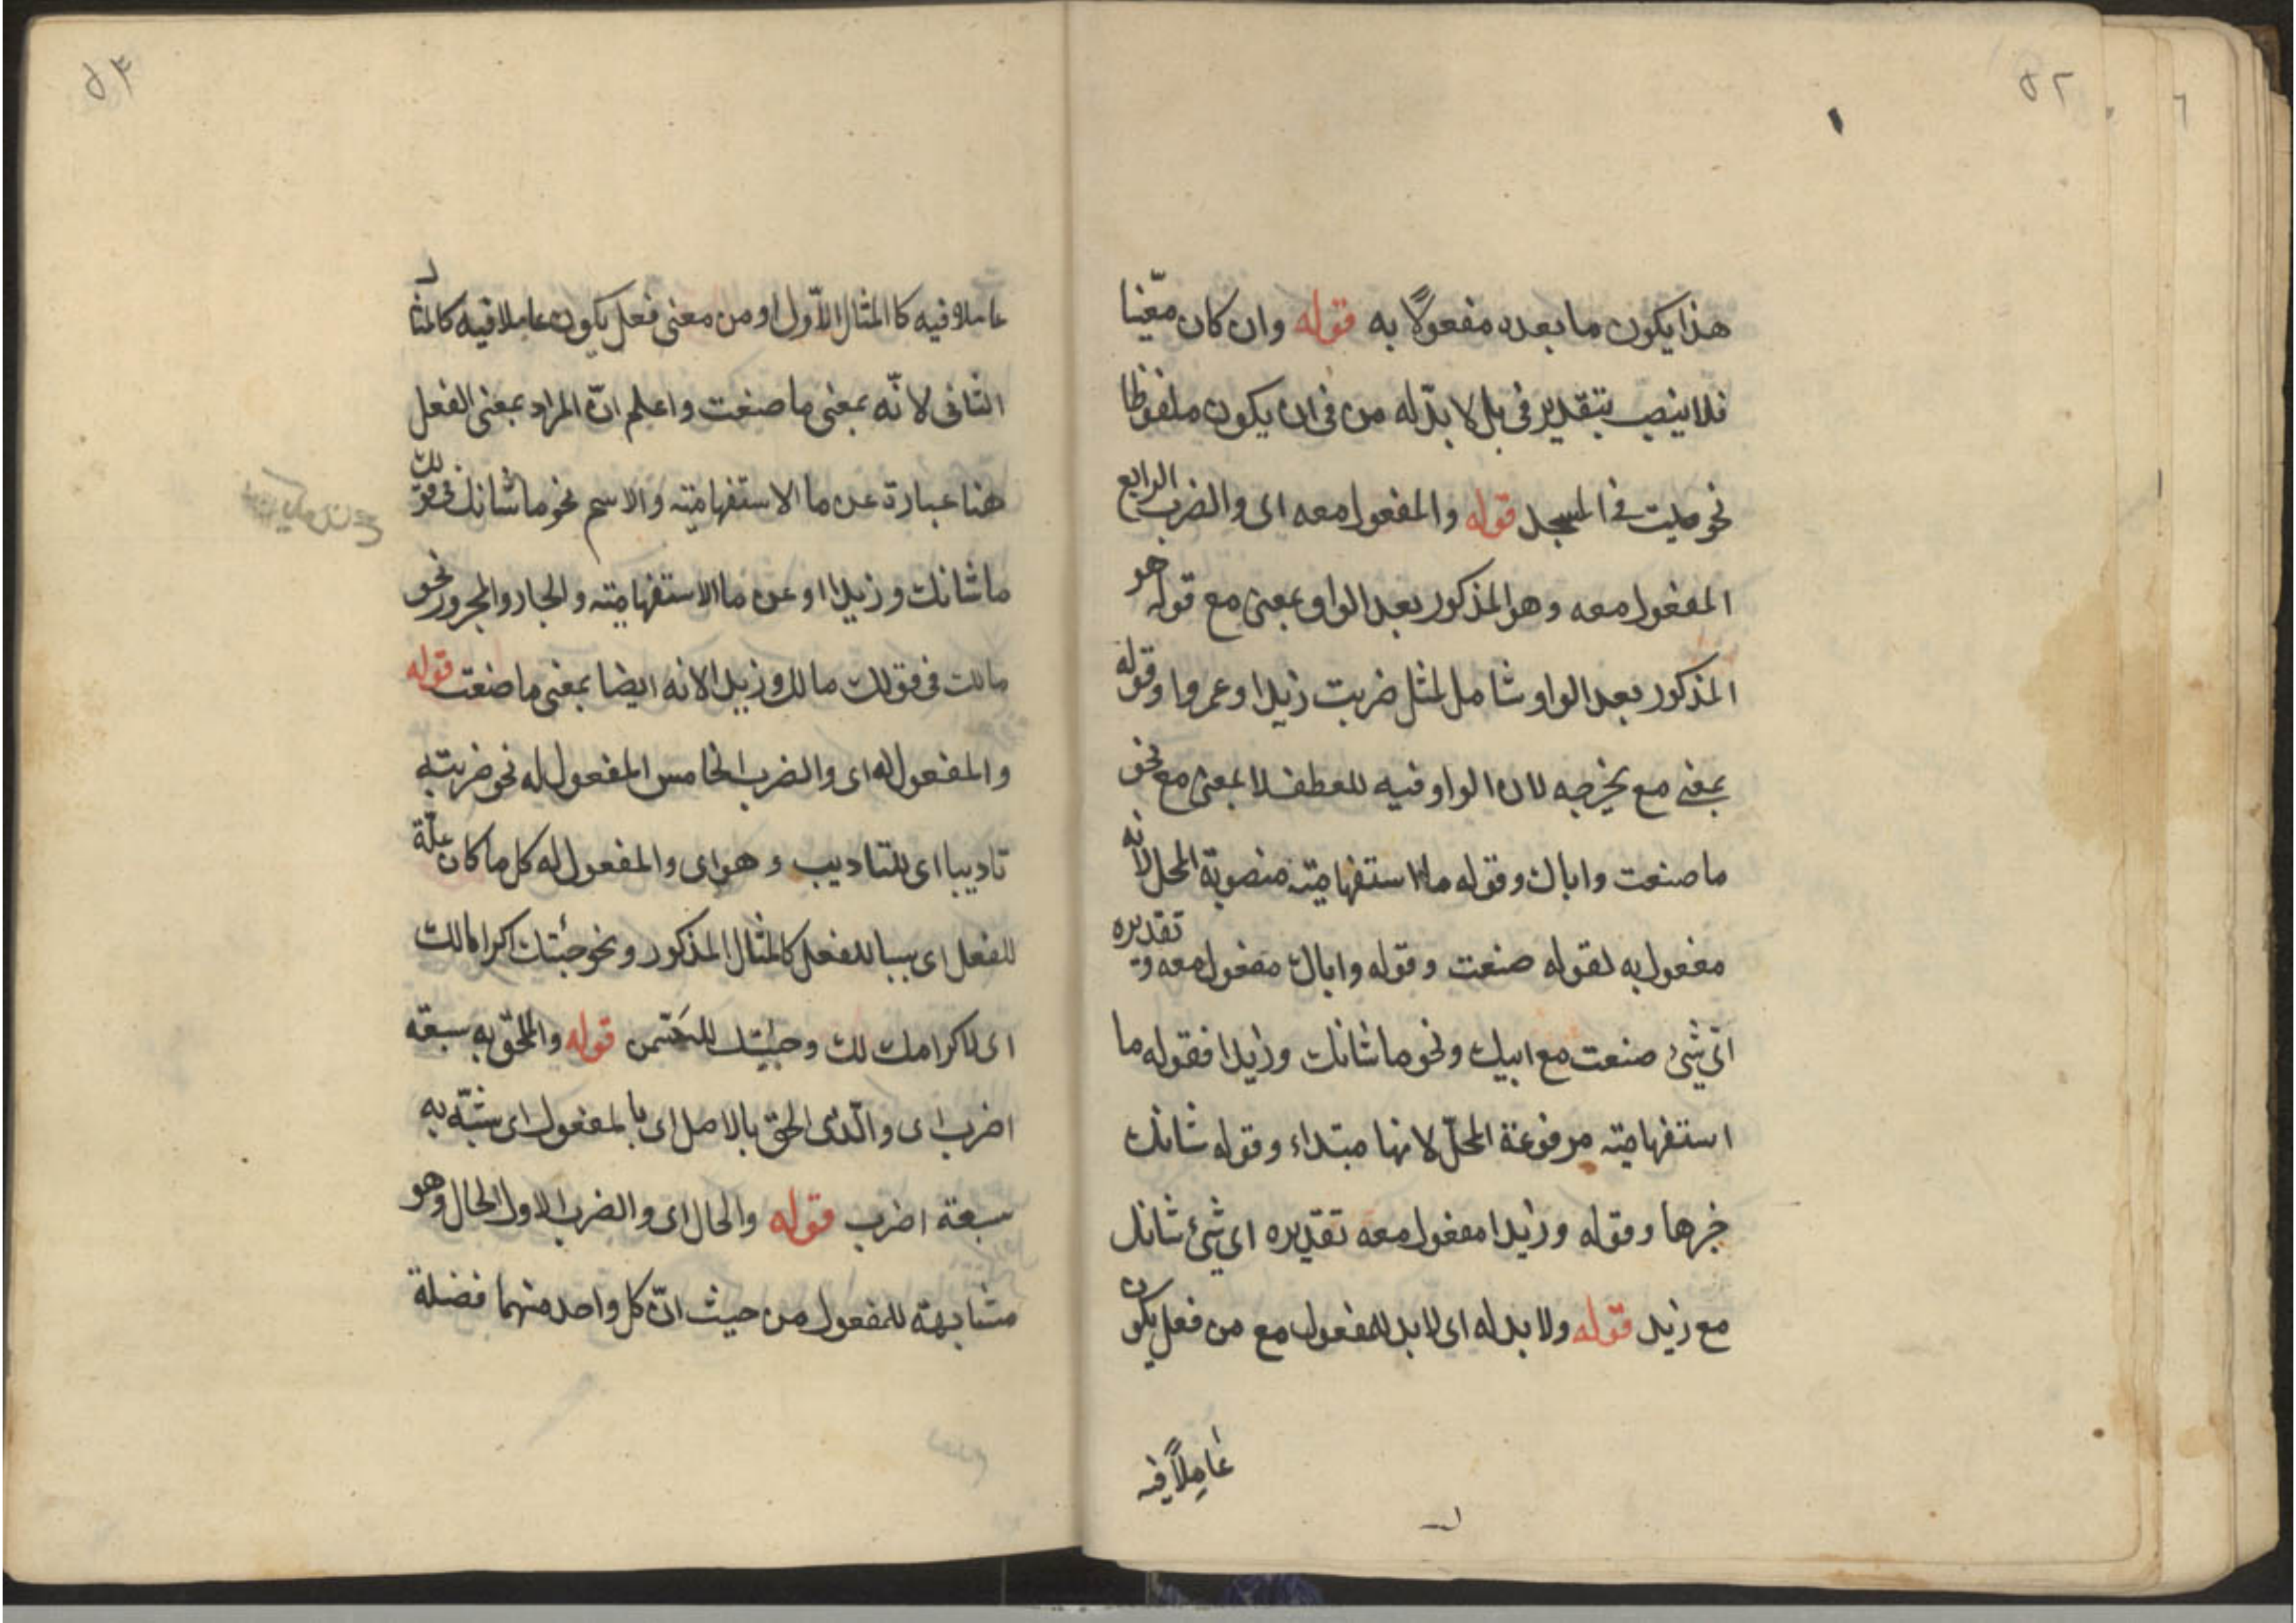 ٥٢
هذا يكون ما بعده مفعولاً به قوله وان كان معّينا
فلا ينصب بتقدير فى بل لا بدّ له من فى ان يكون ملفوظا
نحو صليت فى المسجد قوله والمفعول معه اى والضرب الرابع
المفعول معه وهو المذكور بعد الواو بمعنى مع قوله هو
المذكور بعد الواو شامل لمثل ضربت زيدا وعمروا وقوله
بمعنى مع يخرجه لان الواو فيه للعطف لا بمعنى مع نحو
ما صنعت واباك وقوله ما استفهاميّة منصوبة المحل لانه
مفعول به لقوله صنعت وقوله واباك مفعول معه و تقديره
اىّ شئ صنعت مع ابيك ونحو ما شانك وزيدا فقوله ما
استفهاميّة مرفوعة المحلّ لانها مبتداء وقوله شانك
خبرها وقوله وزيدا مفعول معه تقديره اى شئ شانك
مع زيد قوله ولا بد له اى لا بد للمفعول مع من فعل يكون
عاملاً فيه
٥٣
عاملا فيه كا المثال الاّول او من معنى فعل يكون عاملا فيه كالمثال
الثانى لانّه بمعنى ما صنعت واعلم انّ المراد بمعنى الفعل
هنا عبارة عن ما الاستفهاميّة والاسم نحو ما شانك فى قولك
ما شانك وزيدا او عن ما الاستفهاميّة والجار والمجرور نحو
مالك فى قولك مالك وزيدا لانه ايضا بمعنى ما صنعت قوله
والمفعول له اى والضرب الخامس المفعول له نحو ضربته
تاديبا اى للتاديب وهو اى والمفعول له كل ما كان علّة
للفعل اى سببا للفعل كالمثال المذكور ونحو جئتك اكراما لك
اى لاكرامك لك وجئتك للسّمن قوله والملحق به سبعة
اضرب اى والّذى الحق بالاصل اى با لمفعول اى شبّه به
سبعة اضرب قوله والحال اى والضرب الاول الحال وهو
مشابهة للمفعول من حيث انّ كل واحد منهما فضلة